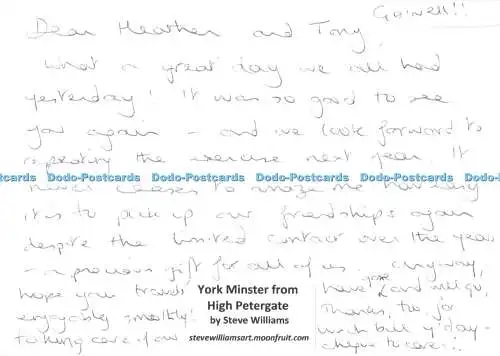 Gowell!!
Dear Heather and Tony,
What a great day we all had
yesterday! It was so good to see
you again - and we look forward to
repeating the exercise next year. It
never ceases to amaze me how easy
Dodo-Postcards Dodo-Postcards Dodo-Postcards Dodo-Postcards Dodo-Postcards
it is to pick up our friendships again
despite the limited contact over the year
- a precious gift for all of us. Anyway,
hope you travel
enjoyably + smoothly!
taking care of our
York Minster from
High Petergate
by Steve Williams
stevewilliamsart.moonfruit.com
have
thanks, too, for
lunch bill y'day -